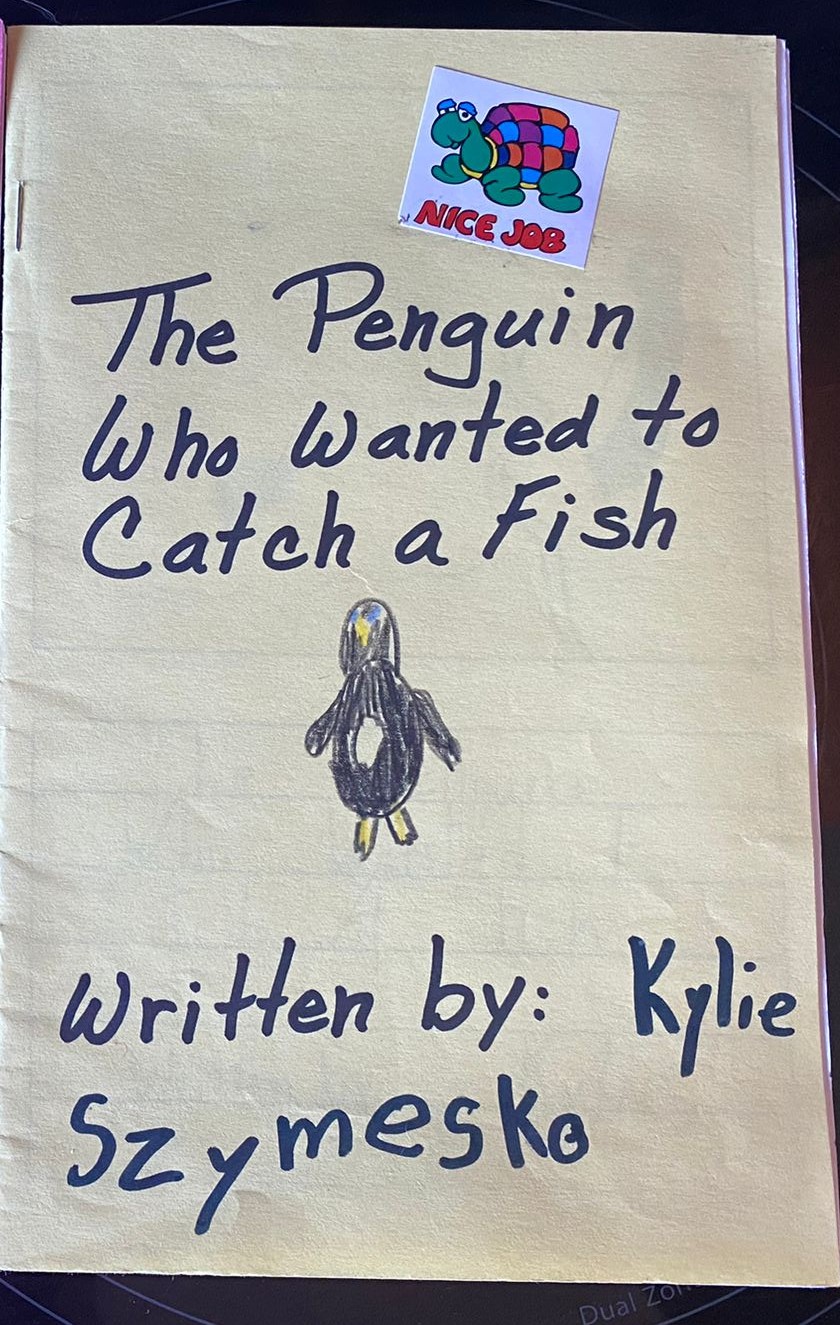 NICE JOB
The Penguin
Who Wanted to
Catch a Fish
Written by: Kylie
Szymesko
Dual Zon